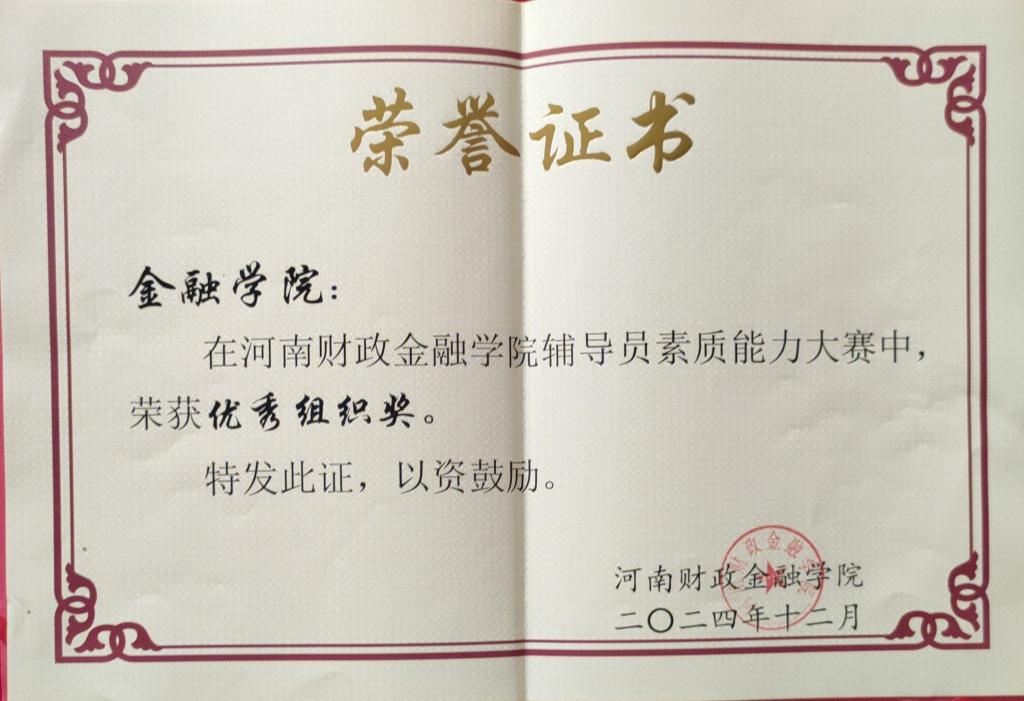 荣誉证书
金融学院：
在河南财政金融学院辅导员素质能力大赛中，
荣获优秀组织奖。
特发此证，以资鼓励。
河南财政金融学院
二〇二四年十二月
财政金融学院